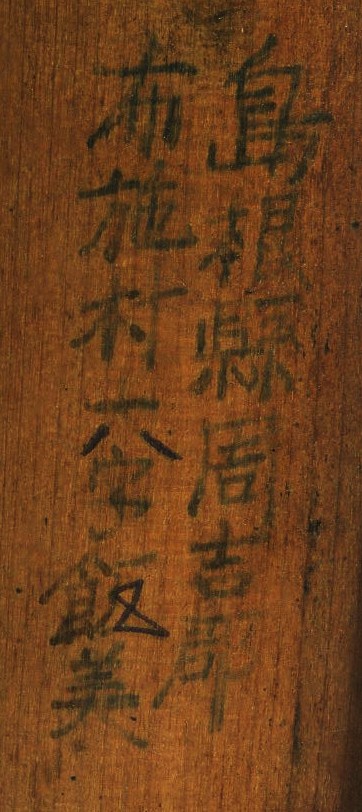 島根縣周吉郡
布施村大字飯美